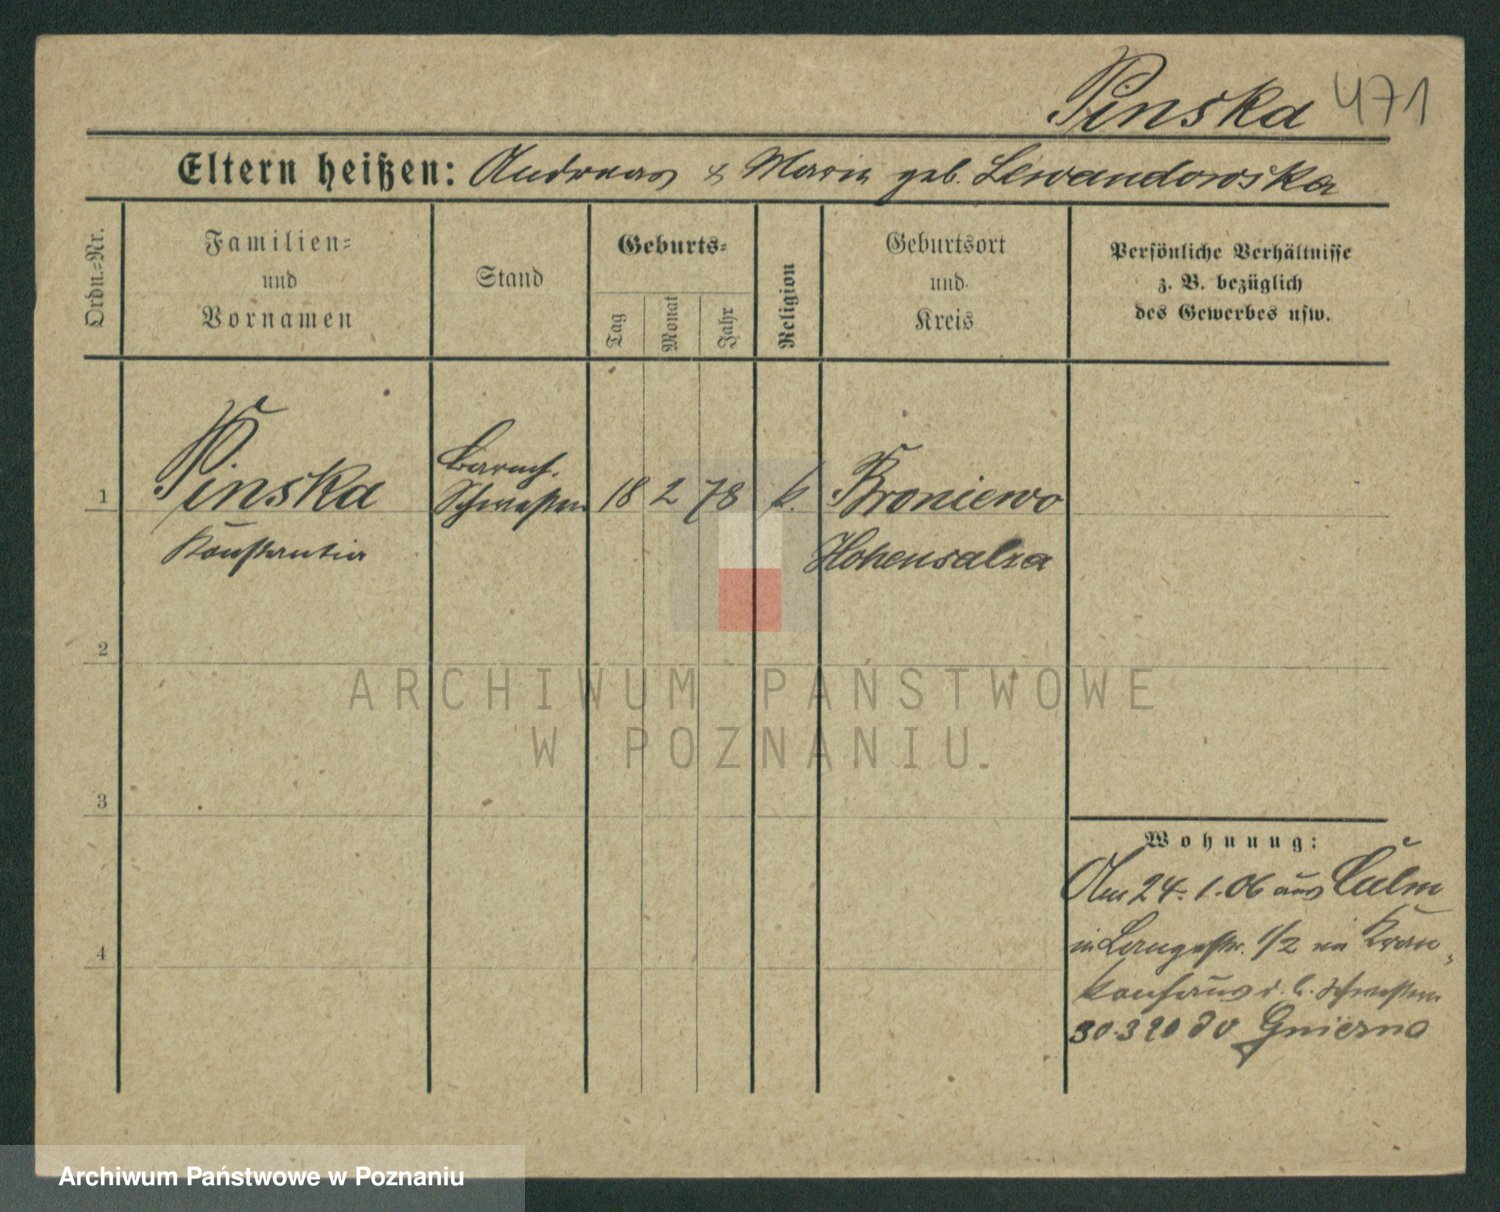 Pinska 471
Eltern heißen: Andreas & Marie geb. Lewandowska
Ordn.-Nr.
Familien-
und
Vornamen
Stand
Geburts-
Tag
Monat
Jahr
Religion
Geburtsort
und
Kreis
Persönliche Verhältnisse
z. B. bezüglich
des Gewerbes usw.
1
Pinska
Konstantia
Barmh.
Schwester
18 2 78 k.
Broniewo
Hohensalza
2
3
4
ARCHIWUM PAŃSTWOWE
W POZNANIU
Wohnung:
Am 24.1.06 aus Culm
in Langestr. 1/2 im Kran-
kenhaus d. b. Schwestern
30.3 20 Gniezno
Archiwum Państwowe w Poznaniu